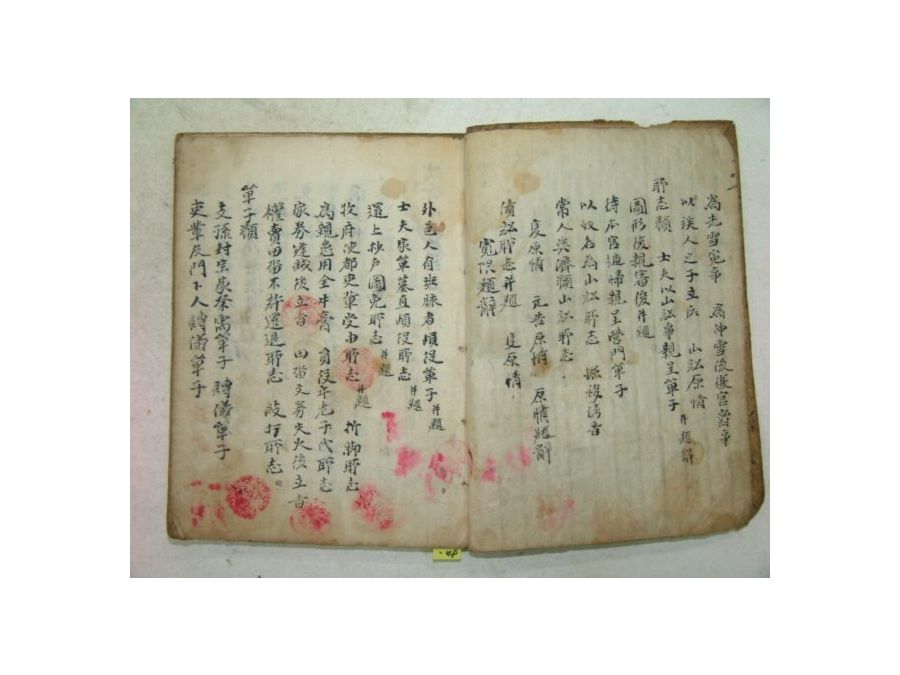 為先雪寃事 為伸雪後復官爵事
以族人之子立后 山訟原情 并題辭
所志類 士夫以山訟事親呈單子
圖形後親審後 并題
待本官還歸親呈營門單子
以奴名為山訟所志 掘移侤音
常人與濟獨山訟所志
更原情 元告原情 原情題辭
債訟所志并題 更原情
寬限題辭
外邑人有班脉者頉役單子 并題
士夫家單墓直頉役所志 并題
還上抄戶圖免所志 并題
牧府使都吏輩受由所志 并題 折脚所志
為親患用全牛膏 身役年老子代所志
家券逢賊後立旨 田畓文券失火後立旨
權賣田畓不許還退所志 敺打所志
單子類
支孫封宗家葬需單子 賻儀單子
吏輩及門下人賻儀單子